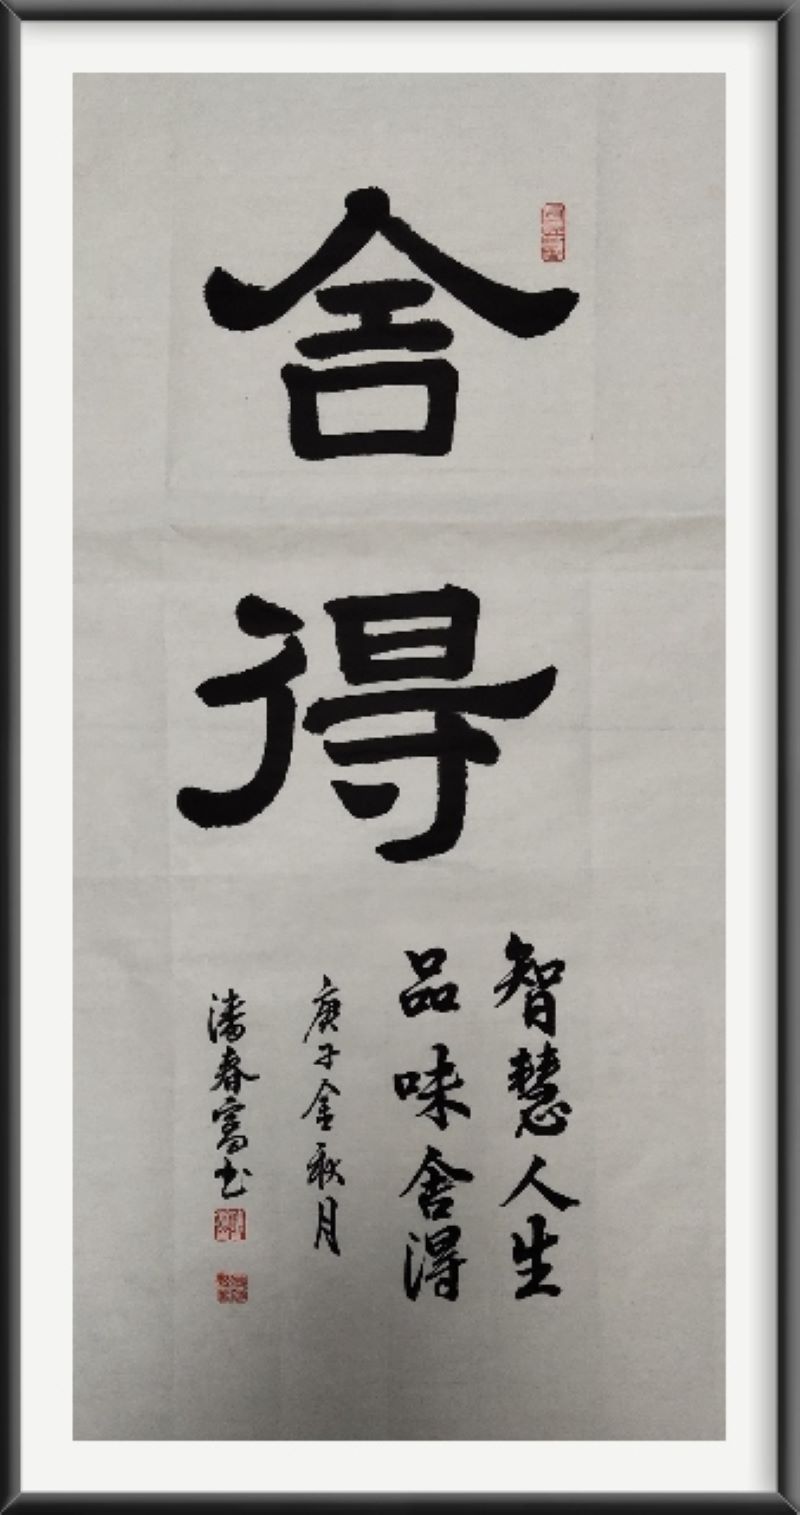 舍得
智慧人生
品味舍得
庚子金秋月
潘春富书